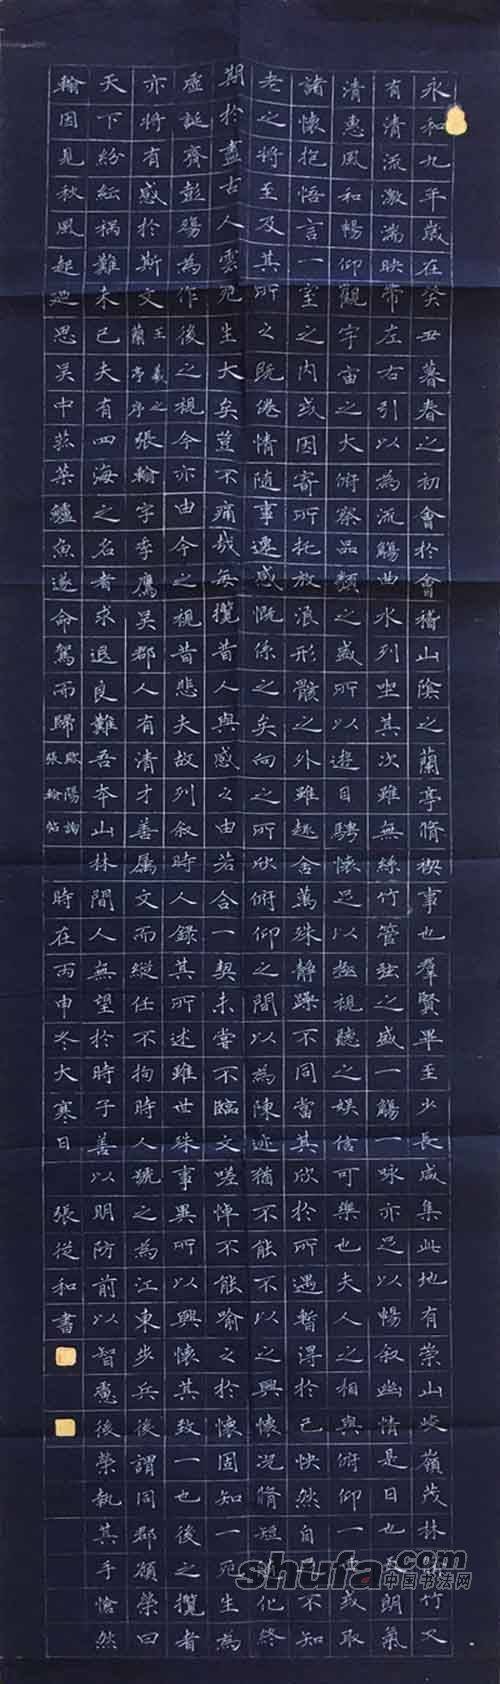 永和九年歲在癸丑暮春之初會於會稽山陰之蘭亭脩禊事也羣賢畢至少長咸集此地有崇山峻嶺茂林竹又
有清流激湍映帶左右引以為流觴曲水列坐其次雖無絲竹管弦之盛一觴一咏亦足以暢叙幽情是日也朗氣
清惠風和暢仰觀宇宙之大俯察品類之盛所以遊目騁懷足以極視聽之娛信可樂也夫人之相與俯仰一或取
諸懷抱悟言一室之內或因寄所托放浪形骸之外雖趣舍萬殊靜躁不同當其欣於所遇暫得於己怏然自不知
老之將至及其所之既倦情隨事遷感慨係之矣向之所欣俯仰之間以為陳迹猶不能不以之興懷况脩短化終
期於盡古人雲死生大矣豈不痛哉每攬昔人興感之由若合一契未嘗不臨文嗟悼不能喻之於懷固知一死生為
虛誕齊彭殤為作後之視今亦由今之視昔悲夫故列叙時人錄其所述雖世殊事異所以興懷其致一也後之攬者
亦將有感於斯文 王羲之蘭亭序 張翰字季鷹吳郡人有清才善属文而縱任不拘時人號之為江東步兵後謂同郡顧榮曰
天下紛紜禍難未已夫有四海之名者求退良難吾本山林間人無望於時子善以明防前以智慮後榮執其手愴然
翰因見秋風起廼思吳中菰菜鱸魚遂命駕而歸 歐陽詢張翰帖 時在丙申冬大寒日 張從和書
shufa.com
中国书法网